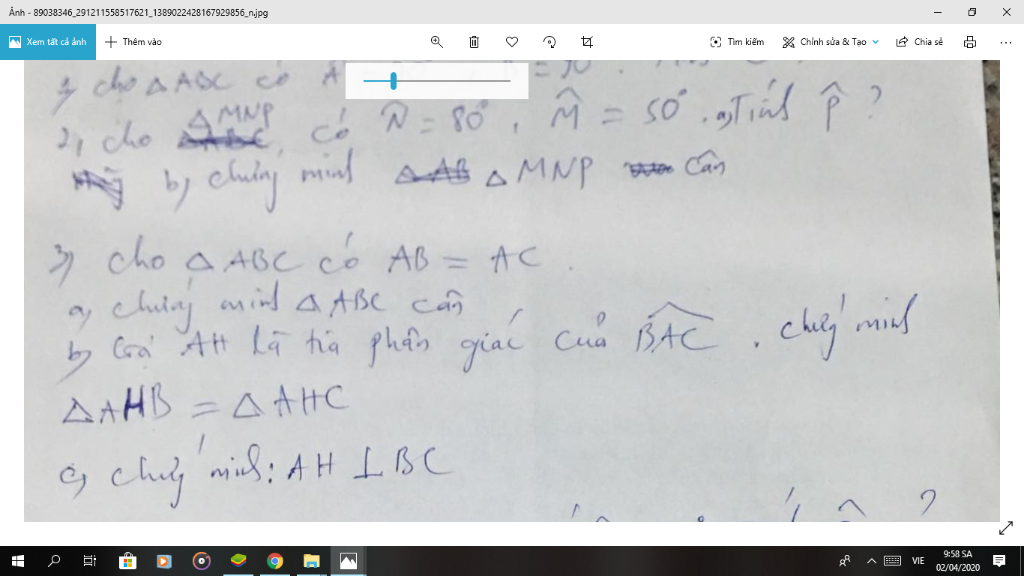 Ảnh - 89038346_291211558517621_1389022428167929856_n.jpg
Xem tất cả ảnh
Thêm vào
Tìm kiếm
Chỉnh sửa & Tạo
Chia sẻ
1, cho △ABC có
2, cho △MNP có N̂ = 80°, M̂ = 50°. a, Tính P̂ ?
b, chứng minh △MNP cân
3, cho △ABC có AB = AC.
a, chứng minh △ABC cân
b, Gọi AH là tia phân giác của BAC. chứng minh
△AHB = △AHC
c, chứng minh: AH ⊥ BC
VIE
9:58 SA
02/04/2020